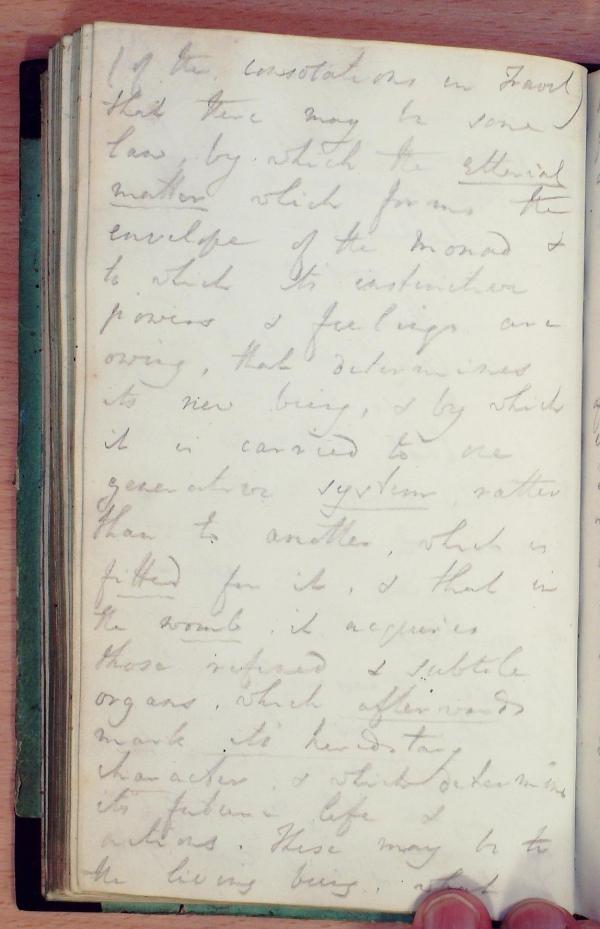 (of the consolations in Travel)
that there may be some
law, by which the etherial
matter which forms the
envelope of the monad &
to which its instinctive
powers & feelings are
owing, that determines
its new being, & by which
it is carried to one
generative system rather
than to another, which is
fitted for it, & that in
the womb it acquires
those refined & subtile
organs, which afterwards
mark its hereditary
character, & which determine
its future life &
actions. These may be to
the living being, what